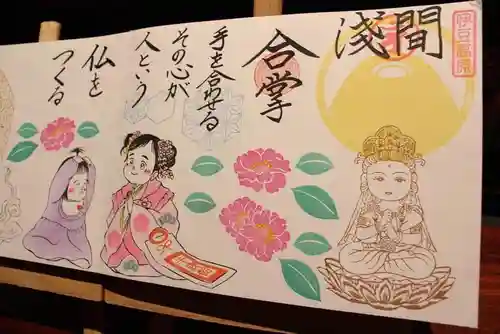 伊豆高原
淺間
合掌
手を合わせる
その心が
人という
仏を
つくる